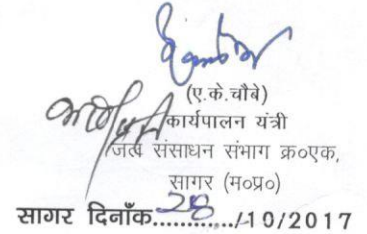 (ए.के.चौबे)
कार्यपालन यंत्री
जल संसाधन संभाग क्र०एक,
सागर (म०प्र०)
सागर दिनाँक...28.../10/2017